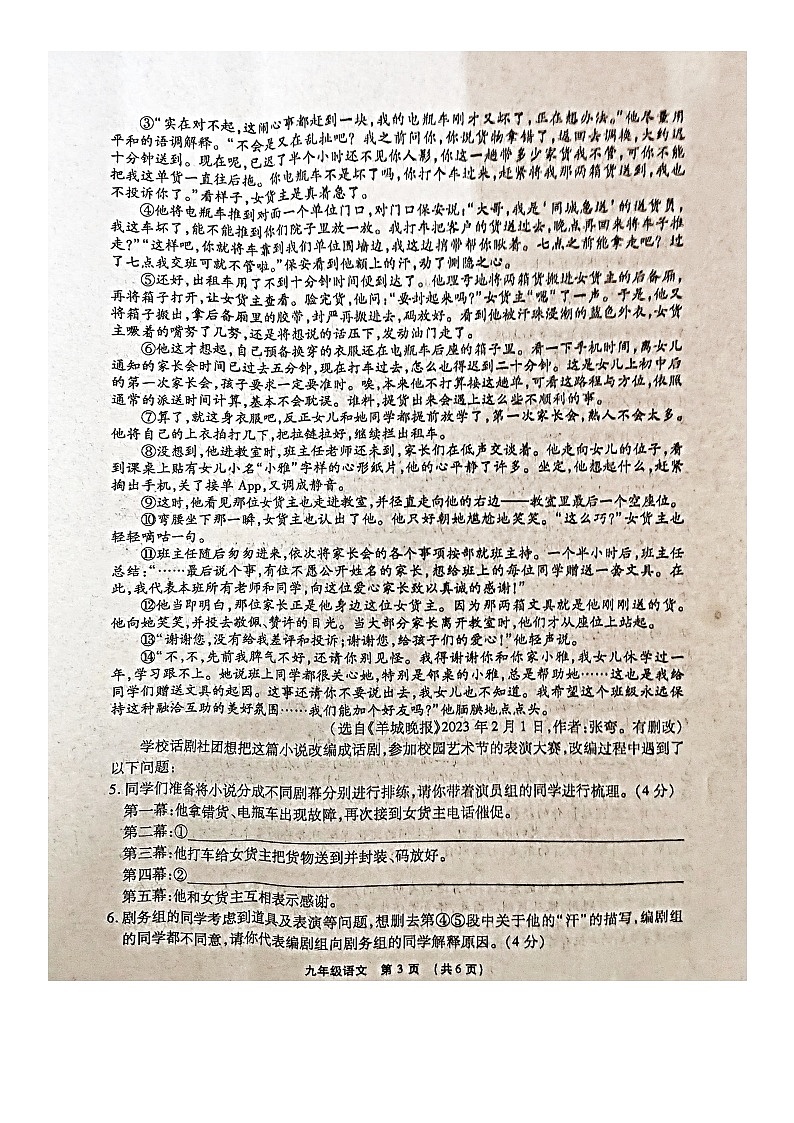 ③“实在对不起,这闹心事都赶到一块,我的电瓶车刚才又坏了,正在想办法。”他尽量用
平和的语调解释。“不会是又在乱扯吧?我之前问你,你说货物拿错了,返回去调换,大约迟
十分钟送到。现在呢,已迟了半个小时还不见你人影,你这一趟带多少家货我不管,可你不能
把我这单货一直往后拖。你电瓶车不是坏了吗,你打个车过来,赶紧将我那两箱货送到,我也
不投诉你了。”看样子,女货主是真着急了。
④他将电瓶车推到对面一个单位门口,对门口保安说:“大哥,我是‘同城急送’的送货员,
我这车坏了,能不能推到你们院子里放一放。我打车把客户的货送过去,晚点再回来将车子推
走?”“这样吧,你就将车靠到我们单位围墙边,我这边捎带帮你瞅着。七点之前能拿走吧?过
了七点我交班可就不管啦。”保安看到他额上的汗,动了恻隐之心。
⑤还好,出租车用了不到十分钟时间便到达了。他理亏地将两箱货搬进女货主的后备厢,
再将箱子打开,让女货主查看。脸定货,他问:“要封起来吗?”女货主“嗯”了一声。于是,他又
将箱子搬出,拿后备厢里的胶带,封严再搬进去,码放好。看到他被汗珠浸潮的蓝色外衣,女货
主噘着的嘴努了几努,还是将想说的话压下,发动油门走了。
⑥他这才想起,自己预备换穿的衣服还在电瓶车后座的箱子里。看一下手机时间,离女儿
通知的家长会时间已过去五分钟,现在打车过去,怎么也得迟到二十分钟。这是女儿上初中后
的第一次家长会,孩子要求一定要准时。唉,本来他不打算接这趟单,可看这路程与方位,依照
通常的派送时间计算,基本不会耽误。谁料,提货出来会遇上这么些不顺利的事。
⑦算了,就这身衣服吧,反正女儿和她同学都提前放学了,第一次家长会,熟人不会太多。
他将自己的上衣拍打几下,把拉链拉好,继续拦出租车。
⑧没想到,他进教室时,班主任老师还未到,家长们在低声交谈着。他走向女儿的位子,看
到课桌上贴有女儿小名“小雅”字样的心形纸片,他的心平静了许多。坐定,他想起什么,赶紧
掏出手机,关了接单 App,又调成静音。
⑨这时,他看见那位女货主也走进教室,并径直走向他的右边——教室里最后一个空座位。
⑩弯腰坐下那一瞬,女货主也认出了他。他只好朝她尴尬地笑笑。“这么巧?”女货主也
轻轻嘀咕一句。
⑪班主任随后匆匆进来,依次将家长会的各个事项按部就班主持。一个半小时后,班主任
总结:“……最后说个事,有位不愿公开姓名的家长,想给班上的每位同学赠送一套文具。在
此,我代表本班所有老师和同学,向这位爱心家长致以真诚的感谢!”
⑫他当即明白,那位家长正是他身边这位女货主。因为那两箱文具就是他刚刚送的货。
他向她笑笑,并投去敬佩、赞许的目光。当大部分家长离开教室时,他们才从座位上站起。
⑬“谢谢您,没有给我差评和投诉;谢谢您,给孩子们的爱心!”他轻声说。
⑭“不,不,先前我脾气不好,还请你别见怪。我得谢谢你和你家小雅,我女儿休学过一
年,学习跟不上。她说班上同学都很关心她,特别是邻桌的小雅,总是帮助她……这也是我给
同学们赠送文具的起因。这事还请你不要说出去,我女儿也不知道。我希望这个班级永远保
持这种融洽互助的美好氛围……我们能加个好友吗?”他腼腆地点点头。
(选自《羊城晚报》2023年2月1日,作者:张弯。有删改)
学校话剧社团想把这篇小说改编成话剧,参加校园艺术节的表演大赛,改编过程中遇到了
以下问题:
5. 同学们准备将小说分成不同剧幕分别进行排练,请你带着演员组的同学进行梳理。(4分)
第一幕:他拿错货、电瓶车出现故障,再次接到女货主电话催促。
第二幕:①
第三幕:他打车给女货主把货物送到并封装、码放好。
第四幕:②
第五幕:他和女货主互相表示感谢。
6. 剧务组的同学考虑到道具及表演等问题,想删去第④⑤段中关于他的“汗”的描写,编剧组
的同学都不同意,请你代表编剧组向剧务组的同学解释原因。(4分)
九年级语文 第3页 (共6页)